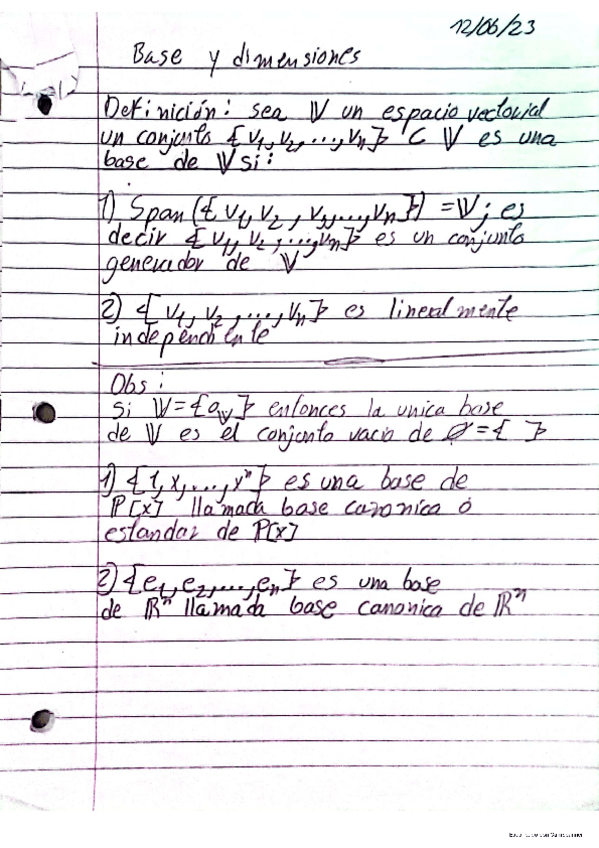 12/06/23
Base y dimensiones
Definición: sea 𝕍 un espacio vectorial
un conjunto {v₁, v₂, ..., vₙ} ⊂ 𝕍 es una
base de 𝕍 si:
1) Span ({v₁, v₂, v₃, ..., vₙ}) = 𝕍; es
decir {v₁, v₂, ..., vₙ} es un conjunto
generador de 𝕍
2) {v₁, v₂, ..., vₙ} es linealmente
independiente
Obs:
si 𝕍 = {0_𝕍} entonces la unica base
de 𝕍 es el conjunto vacio de ∅ = { }
1) {1, x, ..., xⁿ} es una base de
ℙ[x] llamada base canonica o
estandar de ℙ[x]
2) {e₁, e₂, ..., eₙ} es una base
de ℝⁿ llamada base canonica de ℝⁿ